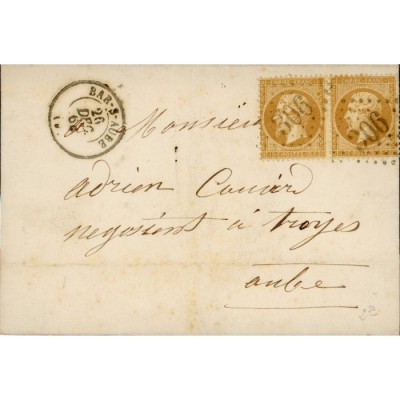 BAR-S-AUBE
26
DEC
306
306
Monsieur
adrien
negociant à troyes
aube